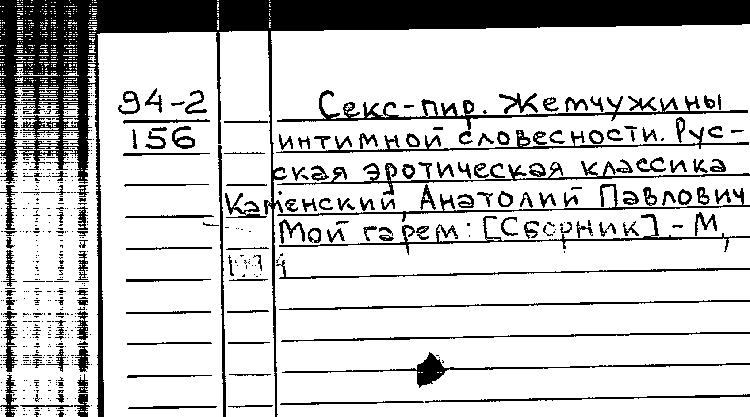 94-2 Секс-пир. Жемчужины
156 интимной словесности. Рус-
ская эротическая классика
Каменский, Анатолий Павлович
Мой гарем: [Сборник] - М.,
1994